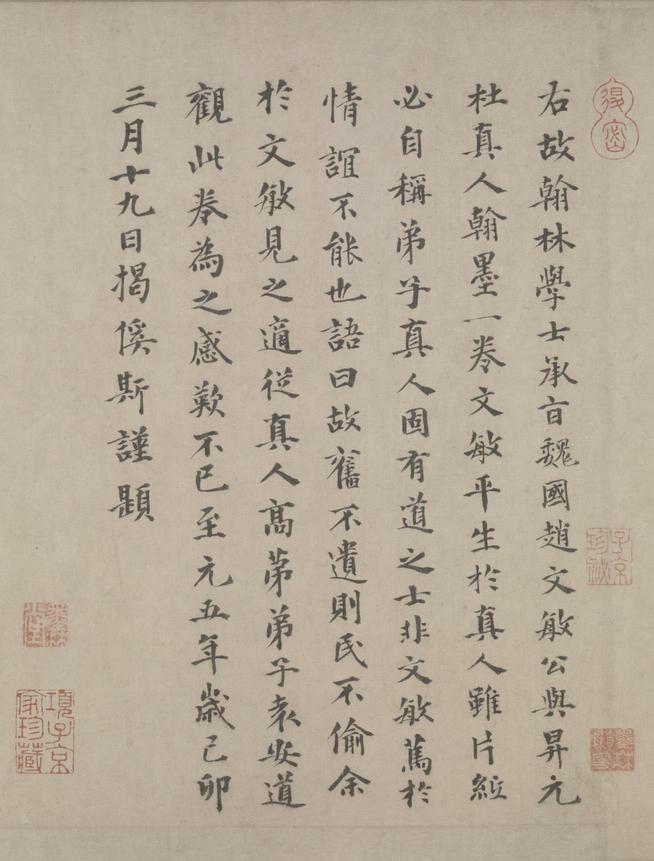 右故翰林學士承旨魏國趙文敏公與昇元
杜真人翰墨一卷文敏平生於真人雖片紙
必自稱弟子真人固有道之士非文敏篤於
情誼不能也語曰故舊不遺則民不偷余
於文敏見之適從真人高弟弟子袁安道
觀此卷為之感歎不已至元五年歲己卯
三月十九日揭傒斯謹題
子京珍祕
項子京家珍藏